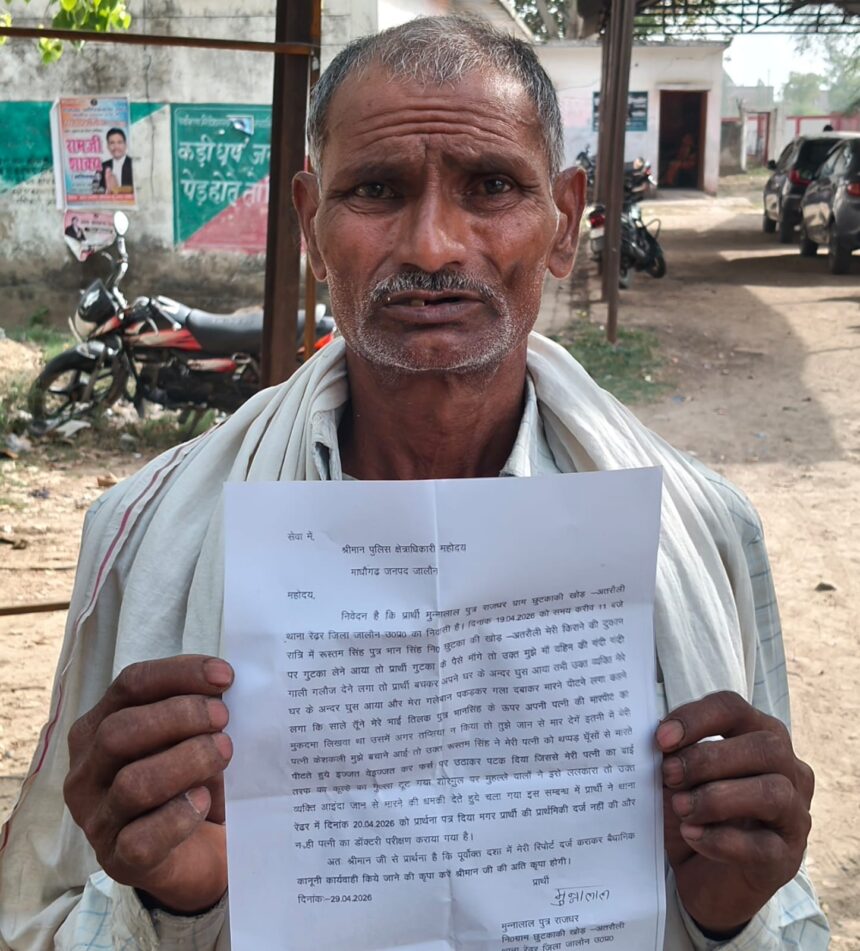 रामजी
कड़ी धूप ज
पेड़ होते तो
सेवा में,
श्रीमान पुलिस क्षेत्राधिकारी महोदय
माधौगढ जनपद जालौन
महोदय,
निवेदन है कि प्रार्थी मुन्नालाल पुत्र राजधर ग्राम छुटकाकी खोड़ –अतरौली
थाना रेढर जिला जालौन उ०प्र० का निवासी है। दिनांक 19.04.2026 को समय करीव 11 बजे
रात्रि में रूस्तम सिंह पुत्र भान सिंह नि० छुटका की खोड़ –अतरौली मेरी किराने की दुकान
पर गुटका लेने आया तो प्रार्थी गुटका के पैसे माँगे तो उक्त मुझे माँ वहिन की गंदी गंदी
गाली गलौज देने लगा तो प्रार्थी बचकर अपने घर के अन्दर घुस आया तभी उक्त व्यक्ति मेरे
घर के अन्दर घुस आया और मेरा गलेबान पकड़कर गला दाबकर मारने पीटने लगा कहने
लगा कि साले तूँने मेरे भाई तिलक पुत्र भानसिंह के ऊपर अपनी पत्नी की मारपीट का
मुकदमा लिखवा था उसमें अगर न किया तो तुझे जान से मार देगें इतनी में मेरी
पत्नी केशकली मुझे बचाने आई तो उक्त रूस्तम सिंह ने मेरी पत्नी को थप्पड़ घूँसों से मारते
पीटते हुये इज्जत वेइज्जत कर फर्स पर उठाकर पटक दिया जिससे मेरी पत्नी का बाई
तरफ का कूल्हे का टूट गया शोरगुल पर मुहल्ले वालों ने इसे ललकारा तो उक्त
व्यक्ति आइंदा जान से मारने की धमकी देते हुवे चला गया इस सम्बन्ध में प्रार्थी ने थाना
रेढर में दिनांक 20.04.2026 को प्रार्थना पत्र दिया मगर प्रार्थी की प्राथमिकी दर्ज नहीं की और
न ही पत्नी का डॉक्टरी परीक्षण कराया गया है।
अतः श्रीमान जी से प्रार्थना है कि पूर्वोक्त दशा में मेरी रिपोर्ट दर्ज कराकर बैधानिक
कानूनी कार्यवाही किये जाने की कृपा करें श्रीमान जी की अति कृपा होगी।
दिनांकः-29.04.2026
प्रार्थी
मुन्नालाल
मुन्नालाल पुत्र राजधर
नि०ग्राम छुटकाकी खोड़ –अतरौली
थाना रेढर जिला जालौन उ०प्र०